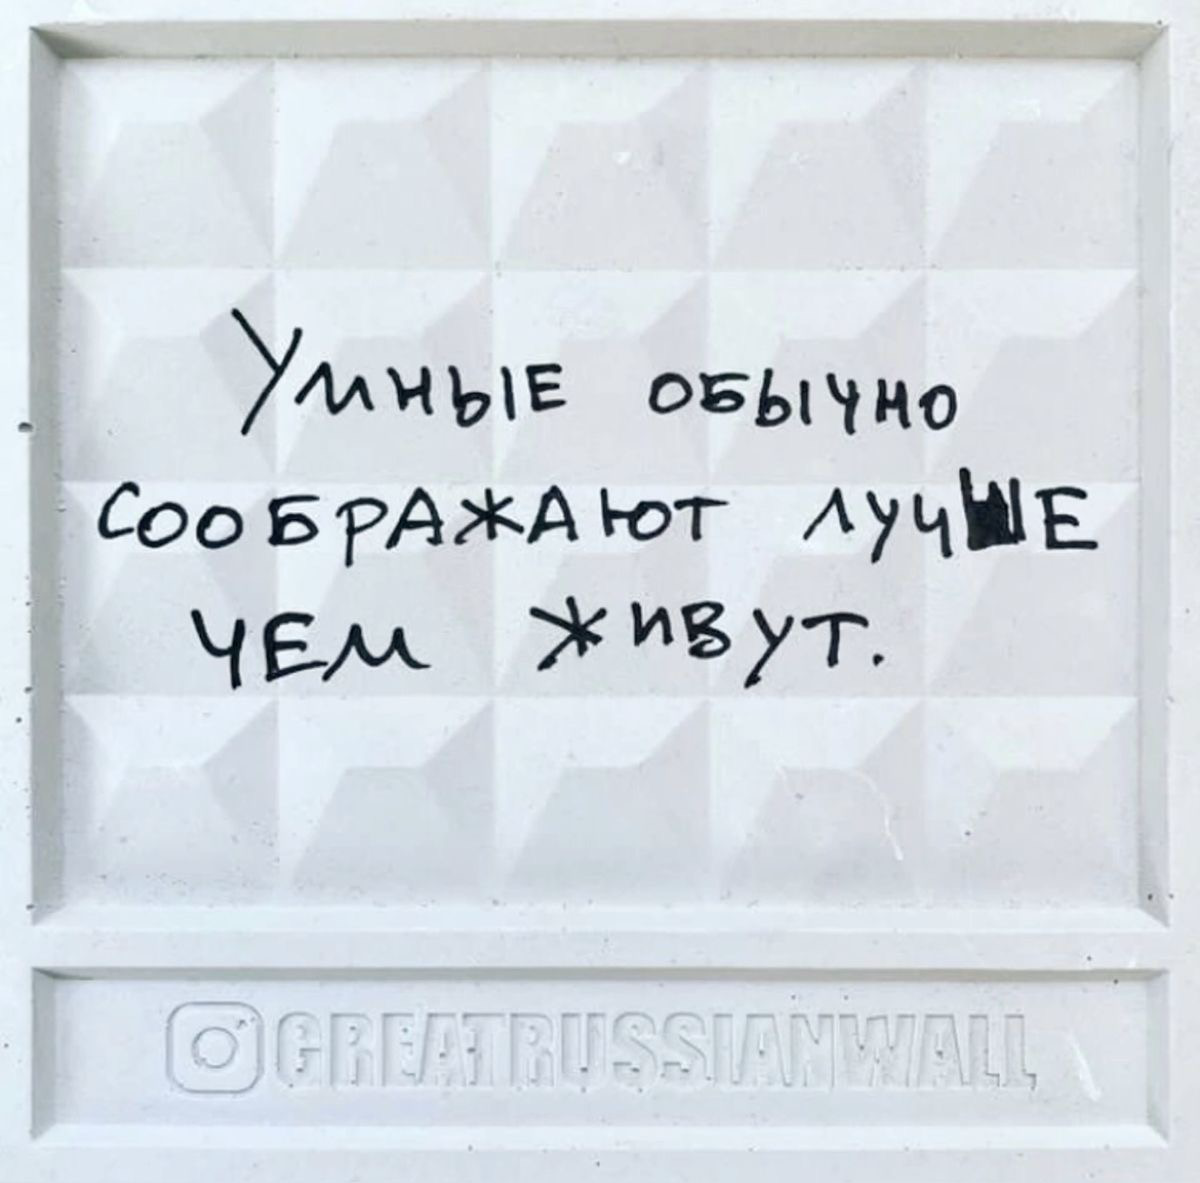 Умные обычно
соображают лучше
чем живут.
GREATRUSSIANWALL